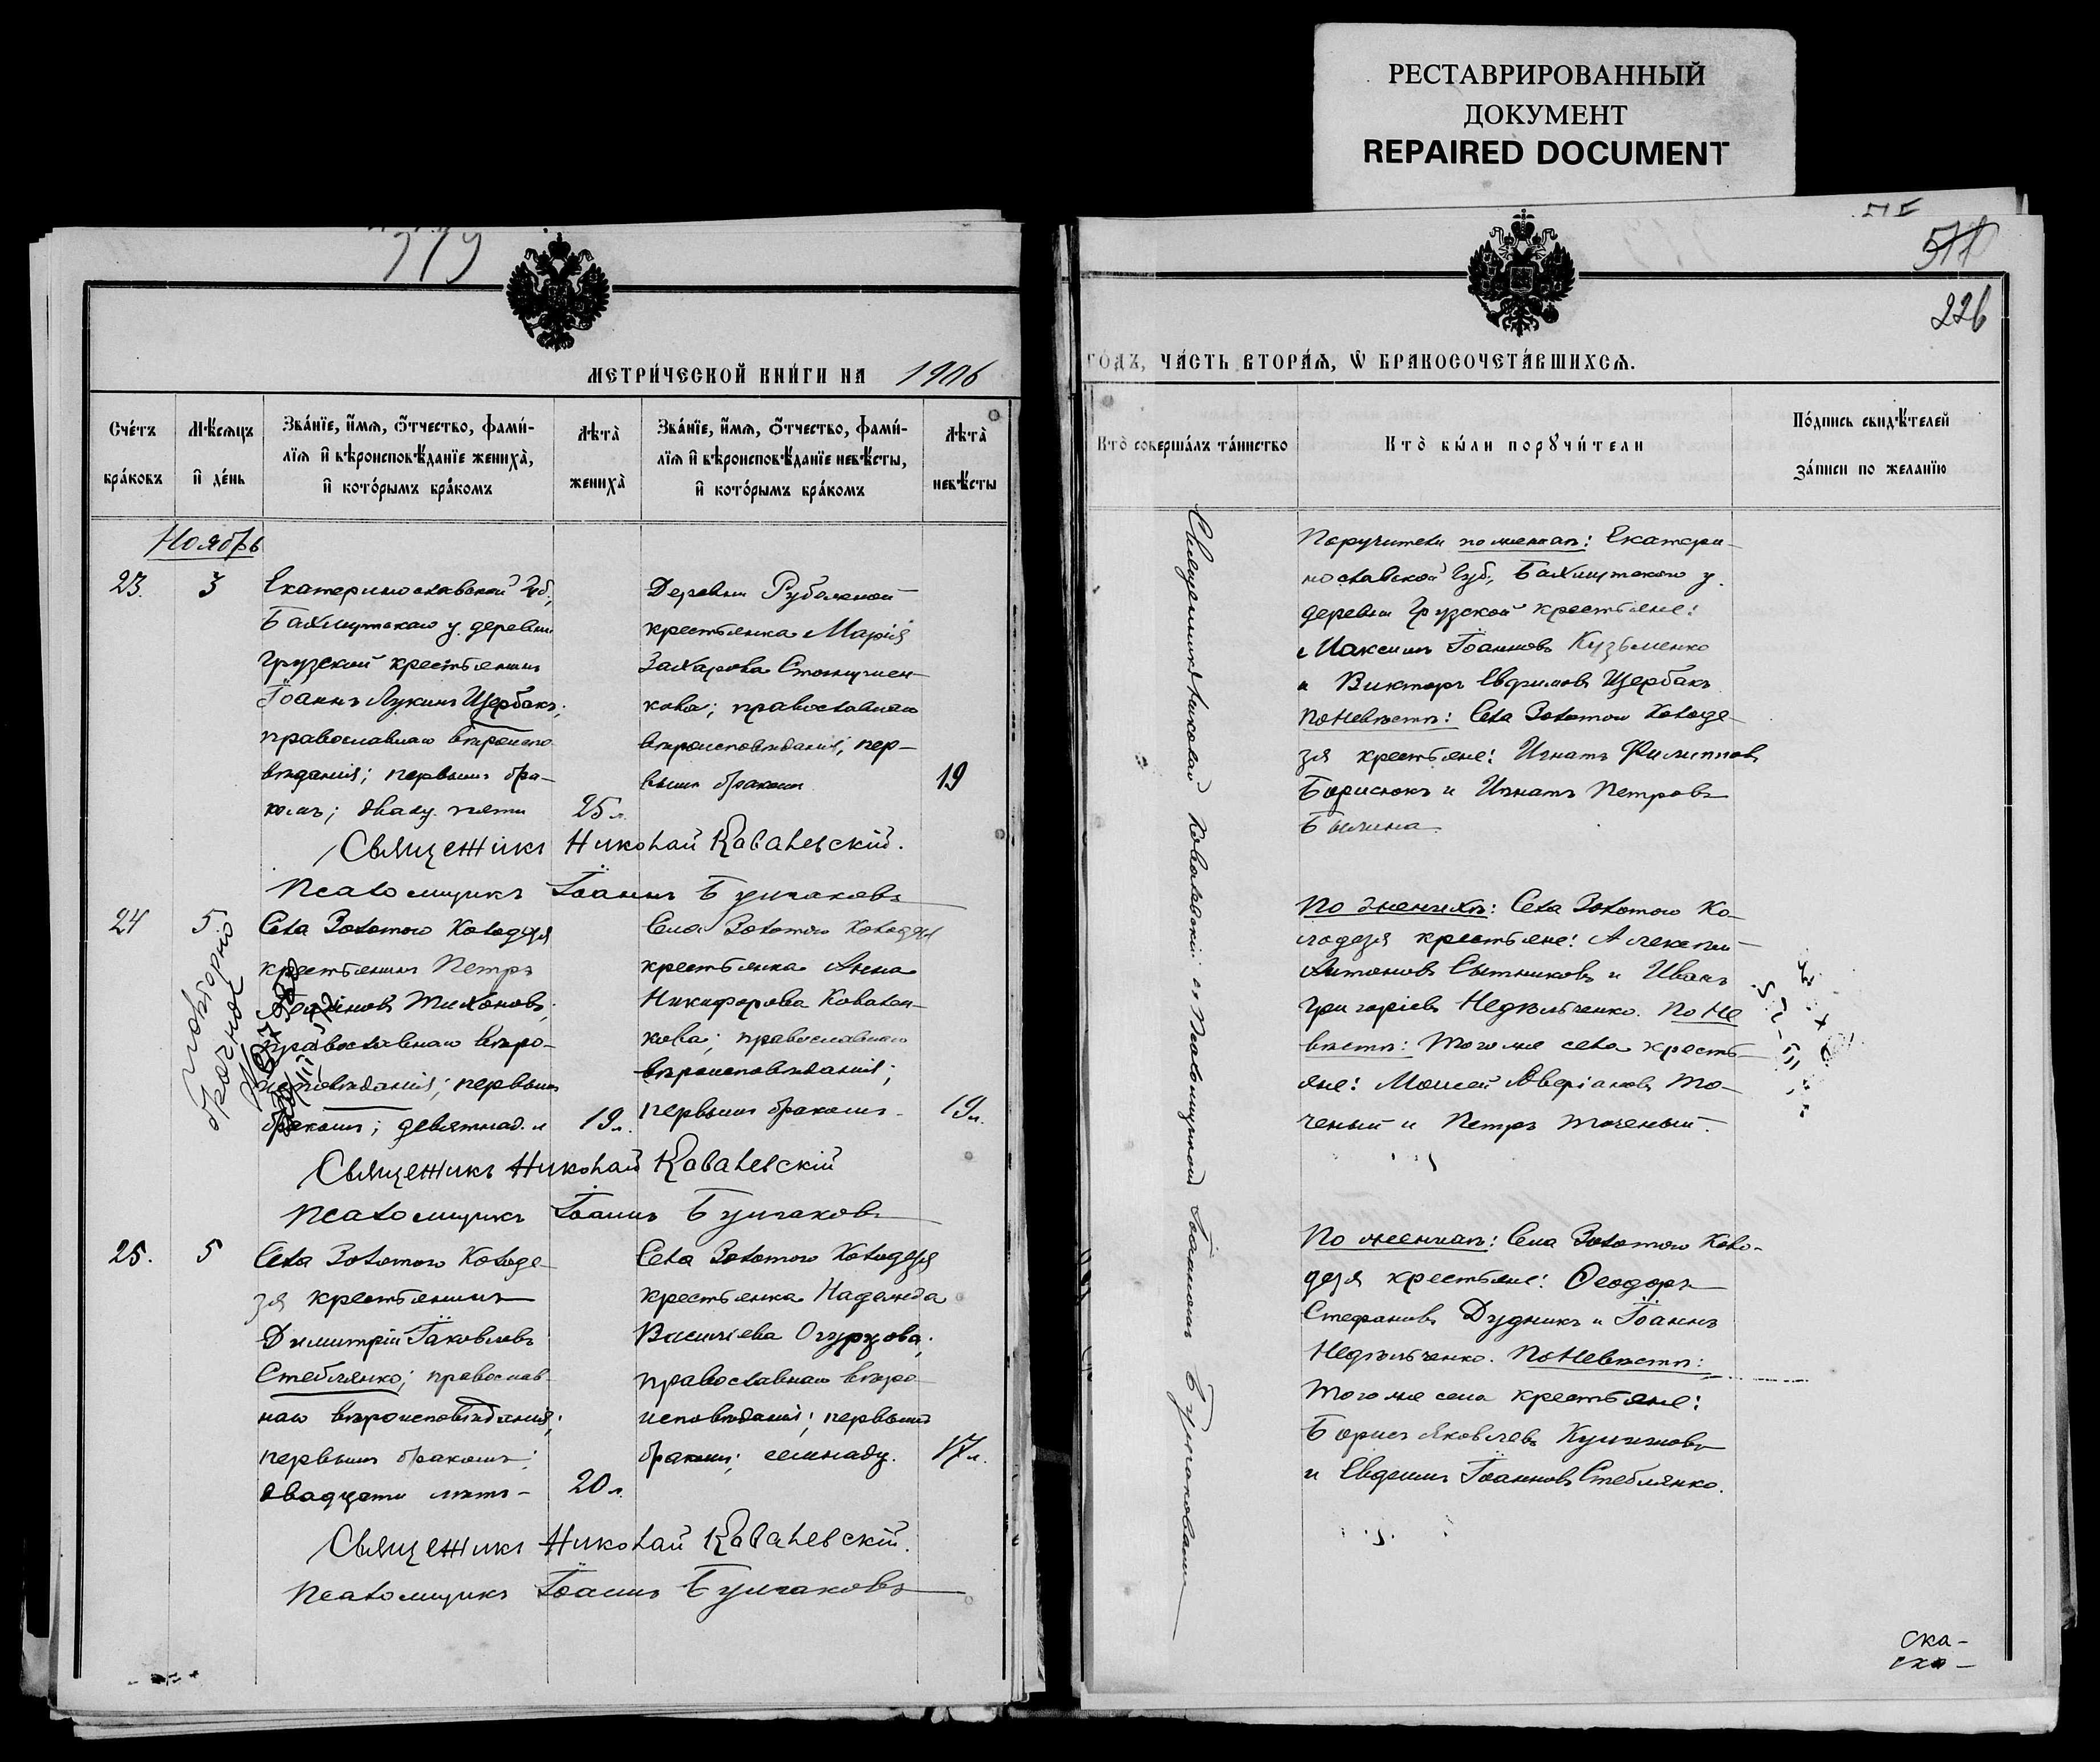 РЕСТАВРИРОВАННЫЙ
ДОКУМЕНТ
REPAIRED DOCUMENT
519
МЕТРИ́ЧЕСКОЙ КНИ́ГИ НА 1906
Сче́тъ
бра́ковъ
Мѣ́сяцъ
и҆ де́нь
Зва́нїе, и҆́мѧ, ѻ҆́тчество, фами́-
лїѧ и҆ вѣроисповѣ́данїе жениха̀,
и҆ кото́рымъ бра́комъ
Лѣта̀
жениха̀
Зва́нїе, и҆́мѧ, ѻ҆́тчество, фами́-
лїѧ и҆ вѣроисповѣ́данїе невѣ́сты,
и҆ кото́рымъ бра́комъ
Лѣта̀
невѣ́сты
Ноябрь
23.
3
Екатеринославской Губ.,
Бахмутскаго у. деревни
Грузской крестьянинъ
Іоаннъ Лукинъ Щербакъ;
православнаго вѣроиспо-
вѣданія; первымъ бра-
комъ; двадц. пяти
25 л.
Деревни Рубежной
крестьянка Марія
Захарова
кова; православнаго
вѣроисповѣданія; пер-
вымъ бракомъ
19
Священникъ Николай Ковалевскій.
Псаломщикъ Іоаннъ Булгаковъ
24
5
повторно
брачное
Села Золотого Колодезя
крестьянинъ Петръ
Тихоновъ;
православнаго вѣро-
исповѣданія; первымъ
бракомъ; девятнад. л
19 л.
Села Золотого Колодезя
крестьянка Анна
Никифорова Ковален-
кова; православнаго
вѣроисповѣданія;
первымъ бракомъ
19 л.
Священникъ Николай Ковалевскій
Псаломщикъ Іоаннъ Булгаковъ
25.
5
Села Золотого Колоде-
зя крестьянинъ
Димитрій Іаковлевъ
Стеблянко; православ-
наго вѣроисповѣданія;
первымъ бракомъ;
двадцати лѣтъ
20 л.
Села Золотого Колодезя
крестьянка Надежда
Василіева Огурцова;
православнаго вѣро-
исповѣданія; первымъ
бракомъ; семнадц.
17 л.
Священникъ Николай Ковалевскій.
Псаломщикъ Іоаннъ Булгаковъ
226
ГО́ДЪ, ЧА́СТЬ ВТОРА́Ѧ, Ѽ БРАКОСОЧЕТА́ВШИХСѦ.
Кто̀ соверша́лъ та́инство
Кто̀ бы́ли порꙋчи́тели
По́дпись свидѣ́телей
за́писи по жела́нїю
Священникъ Николай Ковалевскій съ Псаломщикомъ Іоанномъ Булгаковымъ
Поручители по женихѣ: Екатери-
нославской Губ., Бахмутскаго у.
деревни Грузской крестьяне:
Максимъ Іоанновъ Кузьменко
и Викторъ Евфимовъ Щербакъ
По невѣстѣ: Села Золотого Колоде-
зя крестьяне: Игнатъ Филипповъ
Борисюкъ и Игнатъ Петровъ
Былина
По женихѣ: Села Золотого Ко-
лодезя крестьяне: Алексѣй
Антоновъ Сытниковъ и Иванъ
Григоріевъ Недѣльченко. По не
вѣстѣ: Того же села кресть
яне: Моисей Аверіановъ То-
ченый и Петръ Точеный.
По женихѣ: Села Золотого Коло-
дезя крестьяне: Ѳеодоръ
Стефановъ Дудникъ и Іоаннъ
Недѣльченко. По невѣстѣ:
Того же села крестьяне:
Борисъ Яковлевъ
и Евфимъ Іоанновъ Стеблянко.
Ска-